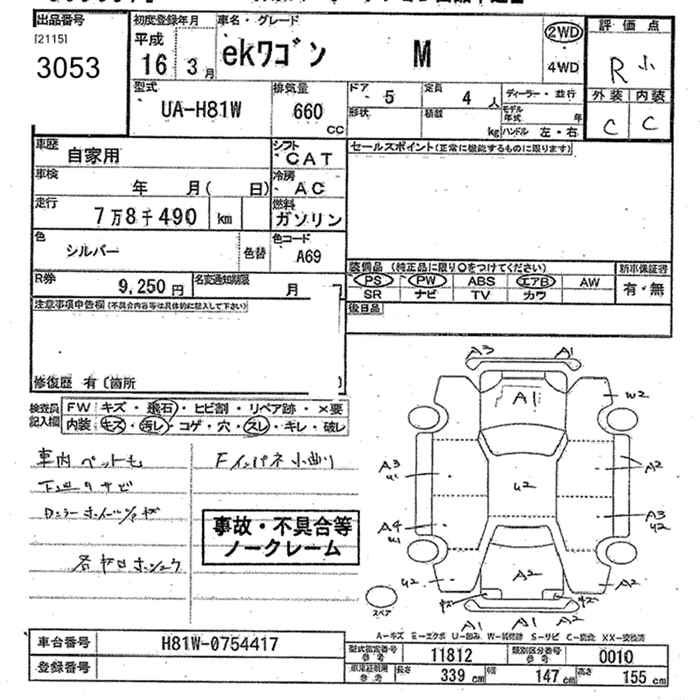 出品番号 初度登録年月 車名・グレード 評価点
[2115] 平成
3053 16 年 3 月 ekワゴン M 2WD 4WD R 小
外装 内装
C C
型式 排気量 ドア 定員 ディーラー・並行
UA-H81W 660 cc 5 4 人
形状 積載 kg モデル年式 年
ハンドル 左・右
車歴 自家用 シフト CAT セールスポイント(正常に機能するものに限ります)
車検 年 月( 日) 冷房 AC
走行 7万8千490 km 燃料 ガソリン
色 シルバー 色替 色コード A69
装備品 (純正品に限り○をつけてください) 新車保証書
PS PW ABS エアB AW 有・無
SR ナビ TV カワ
R券 9,250円 名変通知期限 月
後日品
注意事項申告欄(不具合内容等は具体的に記入して下さい)
修復歴 有〔箇所 〕
検査員記入欄
FW キズ・飛石・ヒビ割・リペア跡・×要
内装 キズ・汚レ・コゲ・穴・スレ・キレ・破レ
車内 ペットも
下廻りサビ
Fインパネ小曲り
事故・不具合等
ノークレーム
A3 A1
A1 W2
A3 U1 A2
U2
A4 U1 A3 U2
U2 A2 A2
A1 A1 A2
スペア
A-キズ E-エクボ U-凹み W-補修跡 S-サビ C-腐食 XX-交換済
車台番号 H81W-0754417
登録番号
型式指定番号 参考 11812 類別区分番号 参考 0010
車車証明用 参考 長さ 339 cm 幅 147 cm 高さ 155 cm